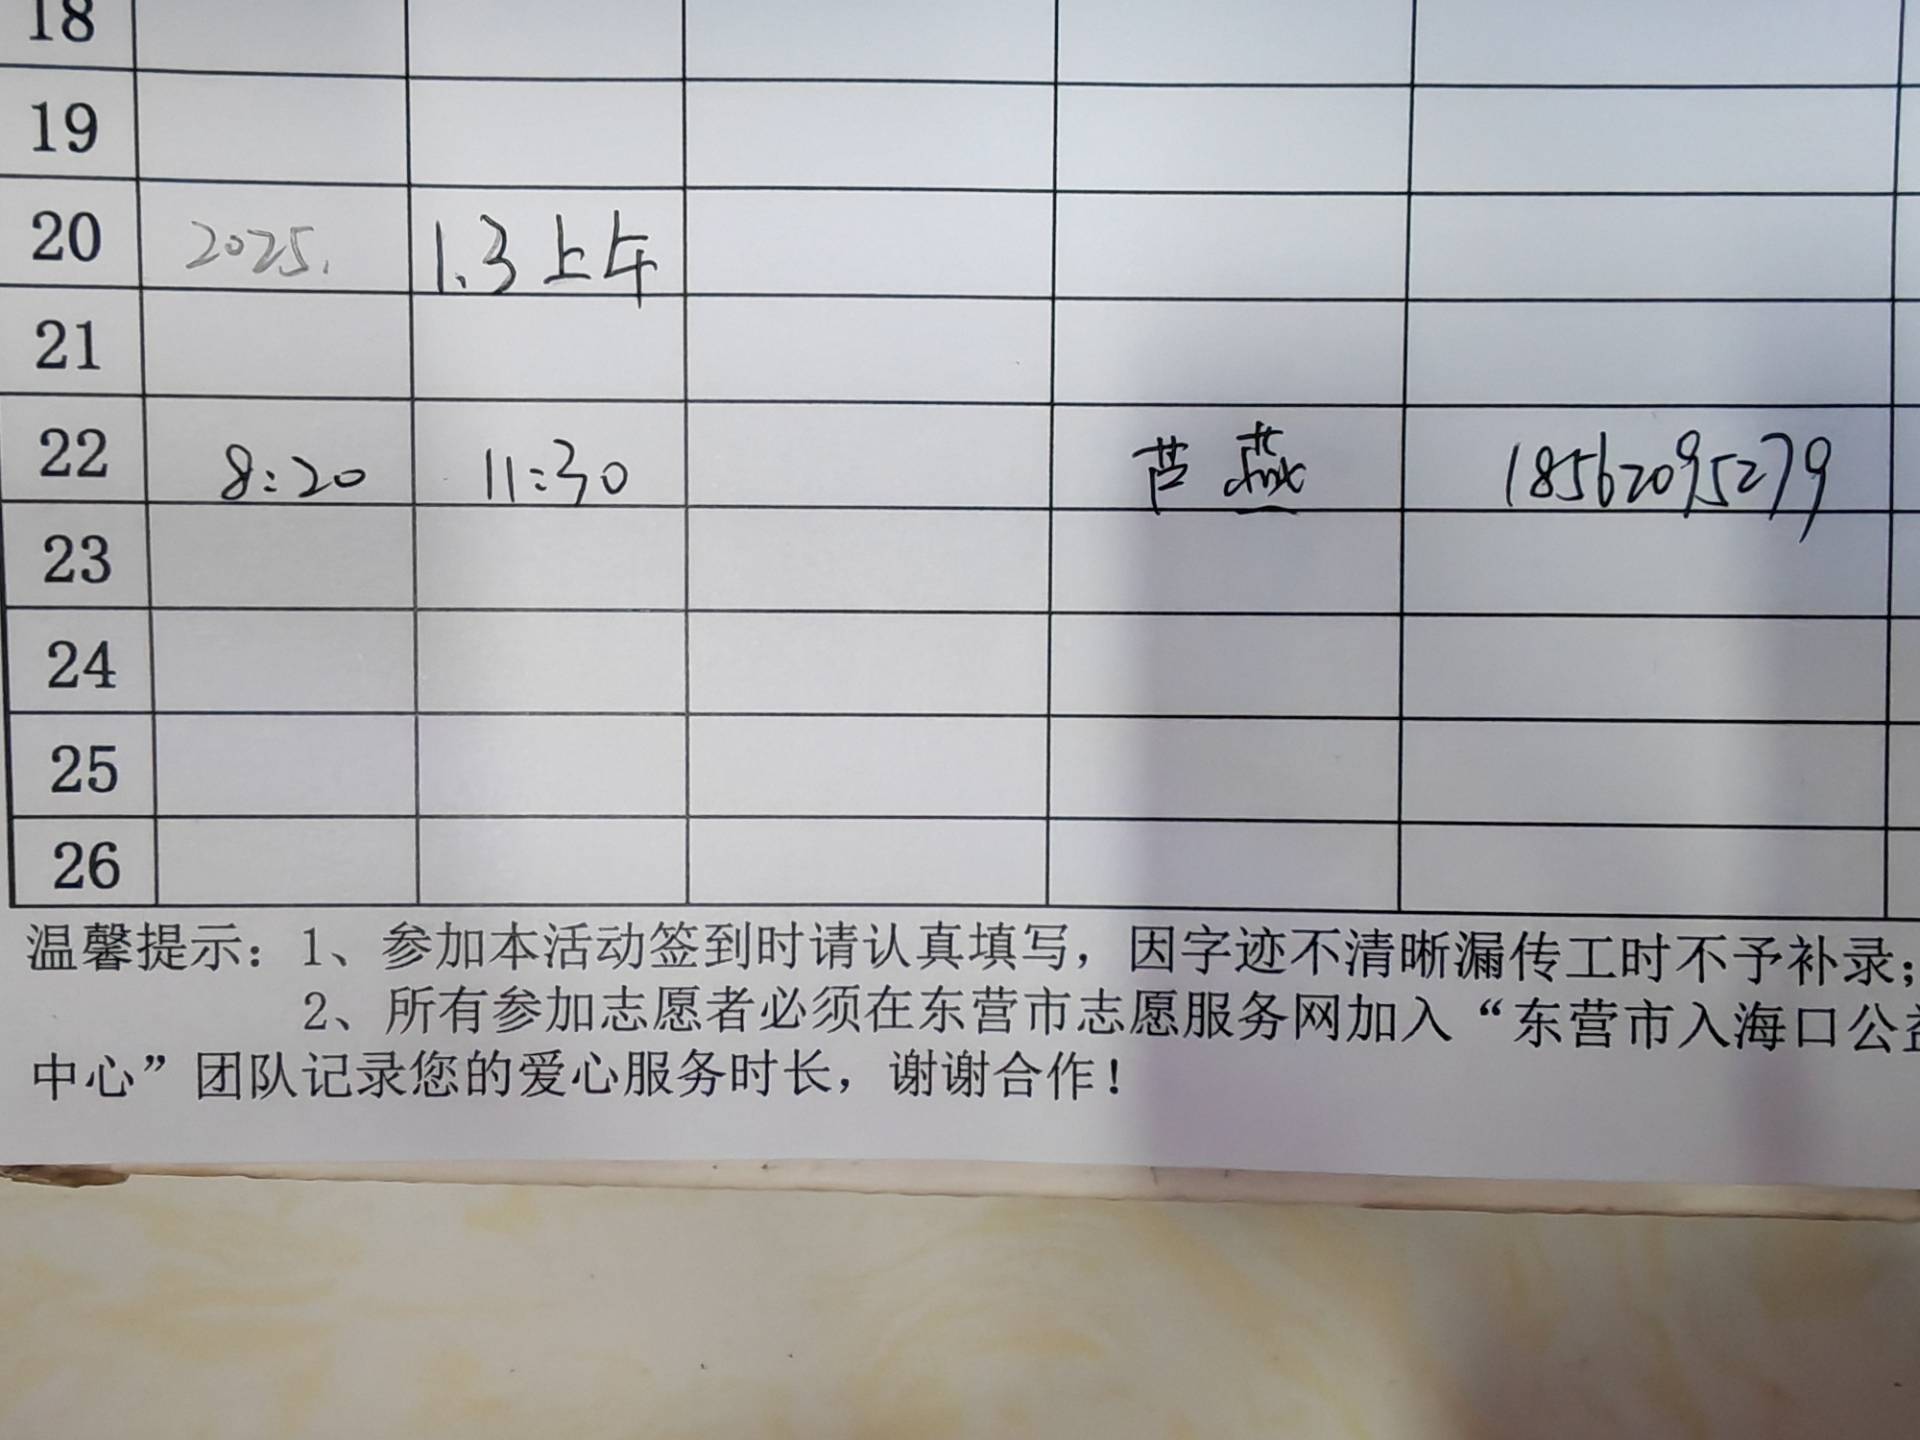 18
19
20 2025. 1.3 上午
21
22 8:20 11:30 芦燕 18562095279
23
24
25
26
温馨提示：1、参加本活动签到时请认真填写，因字迹不清晰漏传工时不予补录；
2、所有参加志愿者必须在东营市志愿服务网加入“东营市入海口公益
中心”团队记录您的爱心服务时长，谢谢合作！